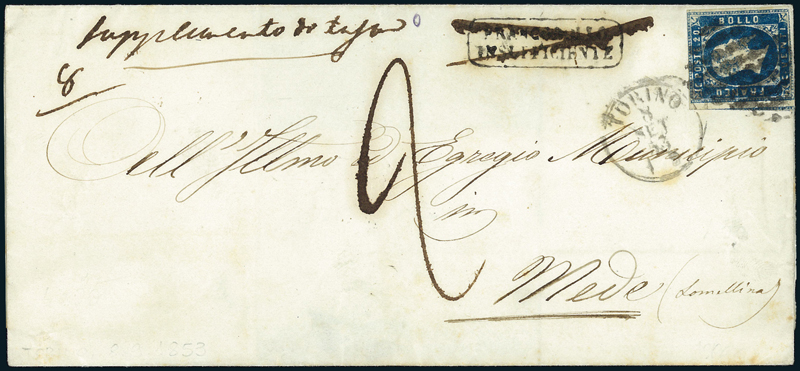 Supplemento di tassa
FRANCOBOLLO
INSUFFICIENTE
BOLLO
C. POST. 20
FRANCO
8
TORINO
8
SET
2
All' Illmo ed Egregio Municipio
in
Mede (Lomellina)
1853